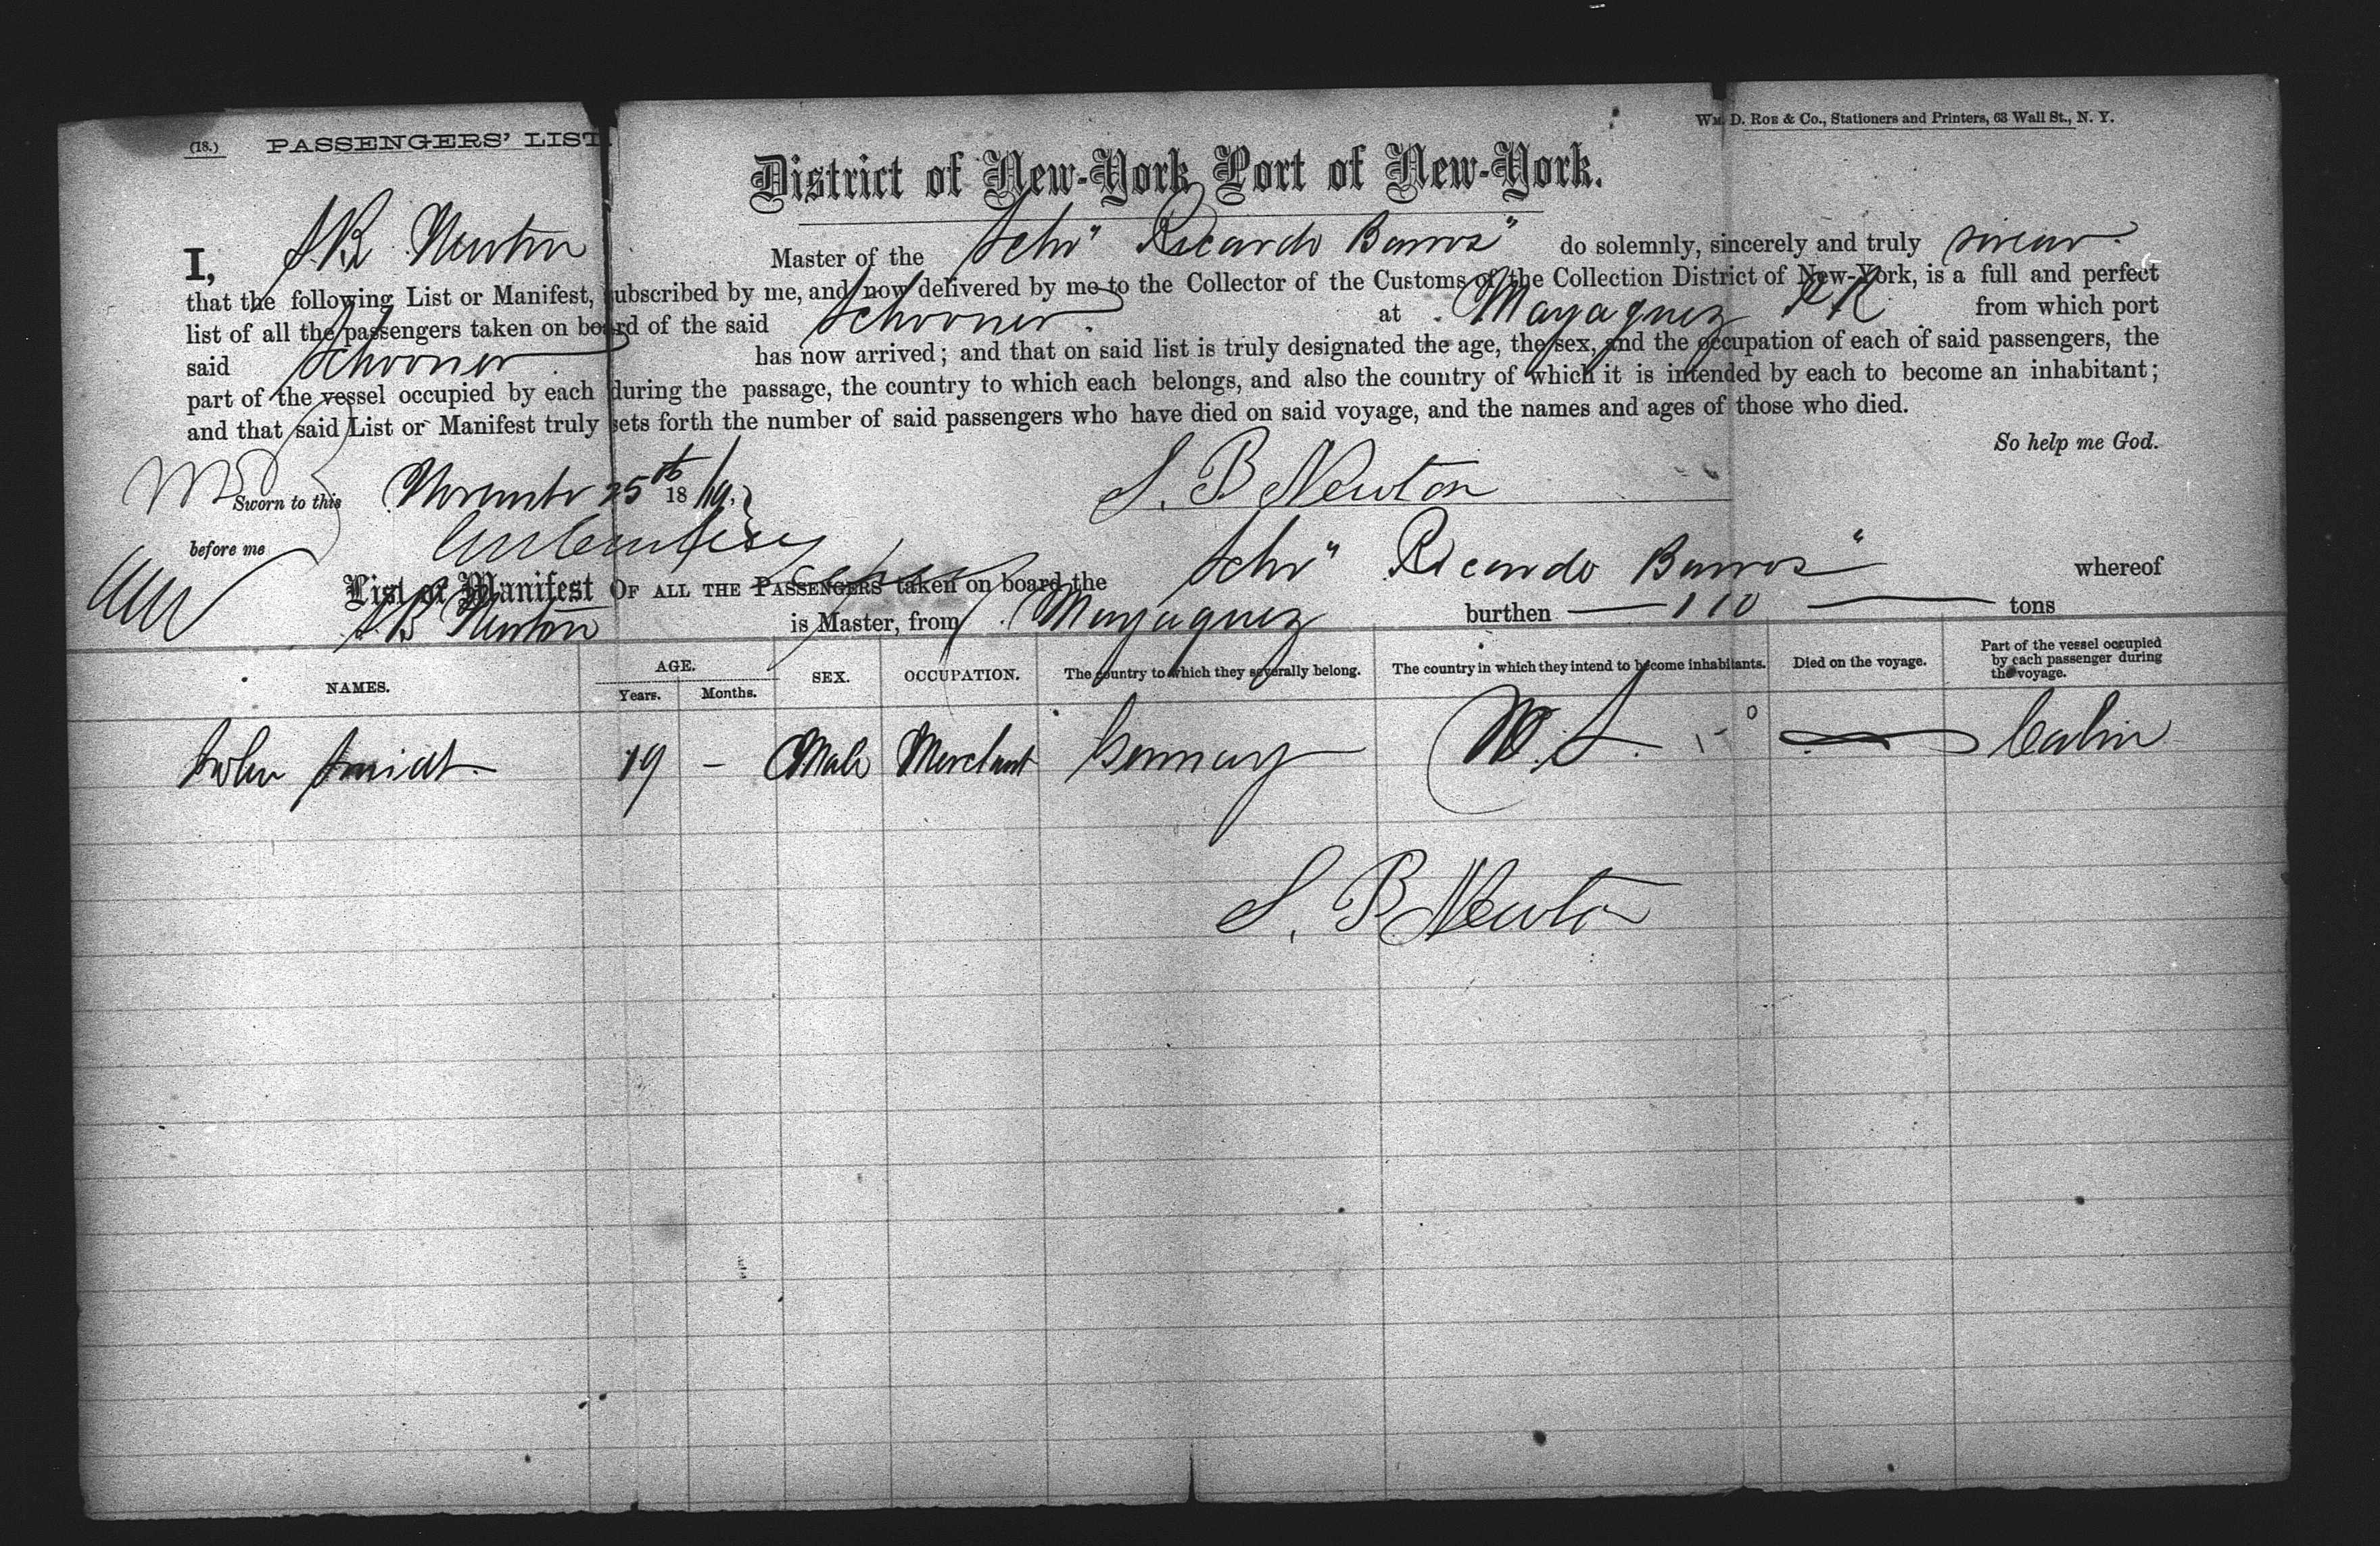 (18.) PASSENGERS' LIST.
Wm. D. Roe & Co., Stationers and Printers, 63 Wall St., N. Y.
District of New-York Port of New-York.
I, S B Newton Master of the Schr "Ricardo Barros" do solemnly, sincerely and truly swear
that the following List or Manifest, subscribed by me, and now delivered by me to the Collector of the Customs of the Collection District of New-York, is a full and perfect
list of all the passengers taken on board of the said Schooner at Mayaguez P R from which port
said Schooner has now arrived; and that on said list is truly designated the age, the sex, and the occupation of each of said passengers, the
part of the vessel occupied by each during the passage, the country to which each belongs, and also the country of which it is intended by each to become an inhabitant;
and that said List or Manifest truly sets forth the number of said passengers who have died on said voyage, and the names and ages of those who died.
So help me God.
Sworn to this November 25th 18
S. B Newton
before me
List or Manifest OF ALL THE PASSENGERS taken on board the Schr "Ricardo Barros" whereof
S B Newton is Master, from Mayaguez burthen 110 tons
NAMES. AGE. Years. Months. SEX. OCCUPATION. The country to which they severally belong. The country in which they intend to become inhabitants. Died on the voyage. Part of the vessel occupied by each passenger during the voyage.
John Smidt 19 – Male Merchant Germany Cabin
S. B Newton